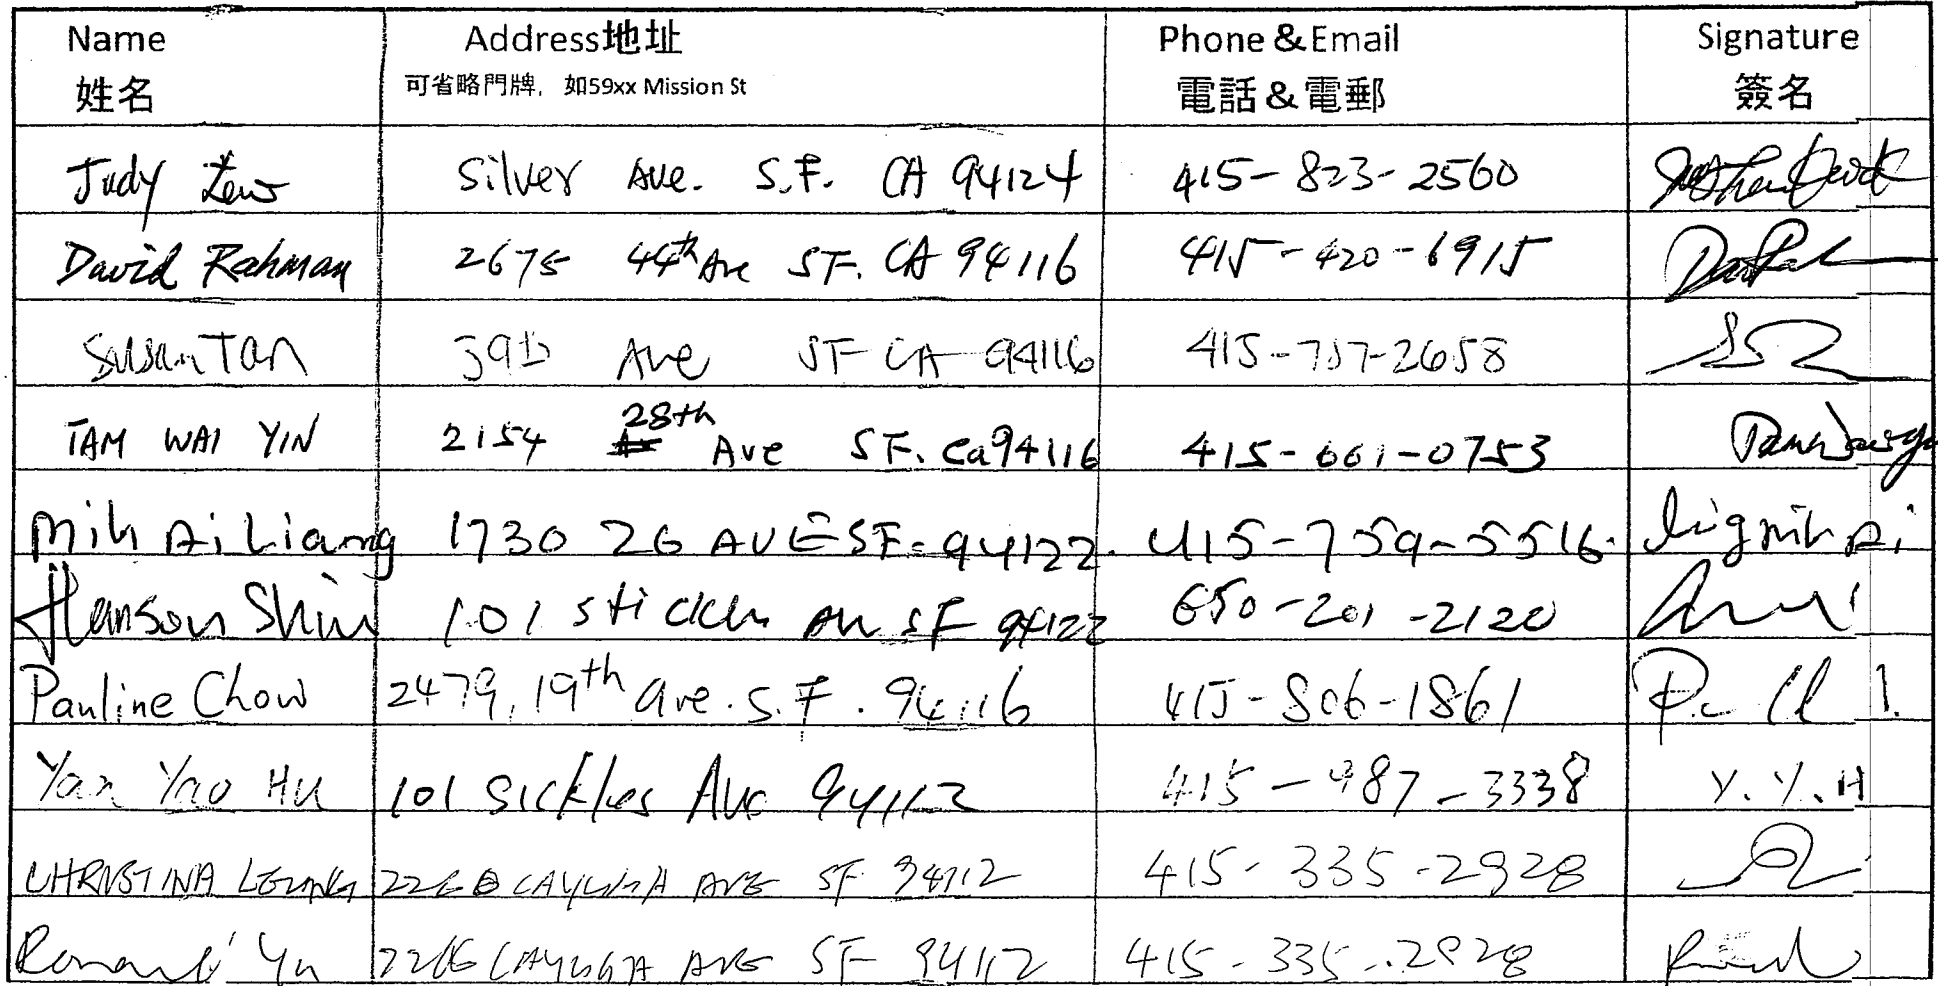 Name Address地址 Phone & Email Signature
姓名 可省略門牌, 如59xx Mission St 電話 & 電郵 簽名
Judy Silver Ave. S.F. CA 94124 415-823-2560
David Rahman 2675 44th Ave SF. CA 94116 415-420-6915
Susan Tan 39th Ave SF CA 94116 415-757-2658
TAM WAI YIN 2154 28th Ave SF. Ca 94116 415-661-0753
Mih Ai Liang 1730 26 AVE SF. 94122. 415-759-5516.
Hanson Shiu 101 SF 94122 650-201-2120
Pauline Chow 2479, 19th ave. S.F. 94116 415-806-1861
Yan Yao Hu 101 Sickles Ave 94112 415-987-3338 Y.Y.H
CHRISTINA LEUNG CAYUGA AVE SF 94112 415-335-2928
Yu CAYUGA AVE SF 94112 415-335-2928